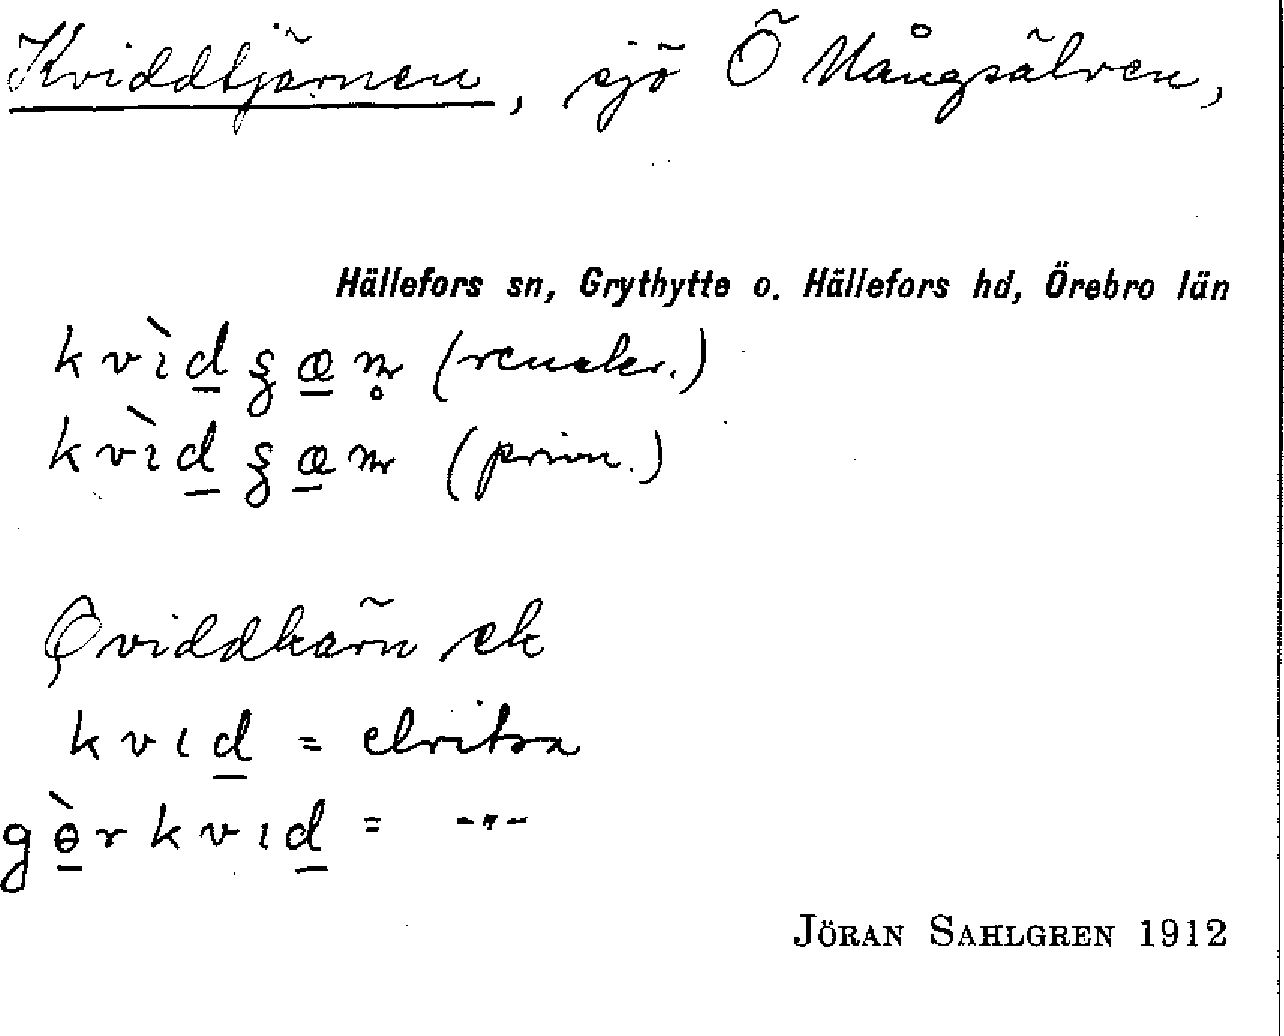 Kviddtjärnen, sjö Ö Mångsälven,
Hällefors sn, Grythytte o. Hällefors hd, Örebro län
(renskr.)
(prim.)
Qviddkärn ek
kvɩd = elritsa
gɵ̀rkvɩd = -"-
JÖRAN SAHLGREN 1912